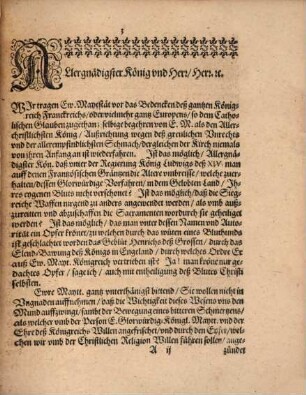 3
Allergnädigster König vnd Herr/ Herr. ꝛc.
WIr tragen Ew. Mayestät vor das Bedencken deß gantzen König-
reich Franckreichs/ oder vielmehr gantz Europens/ so dem Catho-
lischen Glauben zugethan; selbige begehren von E. M. als den Aller-
christlichsten König/ Auffnehmung wegen deß greulichen Vnrechts
vnd der allerempfindlichsten Schmach/ dergleichen der Kirch niemals
von ihren Anfang an ist wiederfahren. Ist das möglich/ Allergnädig-
ster Kön. daß vnter der Regierung König Ludwigs deß XIV. man
auff denen Frantzösischen Gräntzen die Altäre vmbreisse/ welche
halten/ dessen Glorwürdige Vorfahren/ in dem Gelobten Land/ Ih-
res eigenen Bluts nicht verschonet? Ist das möglich/ daß die Sieg-
reiche Waffen nirgend zu anders angewendet werden/ als vmb auß-
zureuten vnd abzuschaffen die Sacramenten wordurch sie geheiliget
werden? Ist das möglich/ das man vnter dessen Namen vnd Auto-
rität ein Opfer frönen/ zu welchen durch das wüten eines Bluthunds
ist geschlachtet worden das Geblüt Henrichs deß Grossen/ durch das
Elend-Bawung deß Königs in Engeland/ durch welches Order Er
auß Ew. Mayt. Königreich vertrieben ist? Ja! man frönet nur ge-
dachtes Opfer/ sage ich/ auch mit entheiligung deß Blutes Christi
selbsten.
Ewre Mayst. gantz vnterthänigst bittend/ Sie wollen nicht in
Vngnaden auffnehmen/ daß die Wichtigkeit dieses Wesens vns den
Mund auffzwingt/ sambt der Bewegung eines bitteren Schmertzens/
als welcher vmb der Person E. Glorwürdig-Königl. Mayet. vnd der
Ehre deß Königreichs Willen angefrischet/ vnd durch den Eyfer/ wel-
chen wir vmb der Christlichen Religion Willen führen sollen/ ange-
A ij zündet